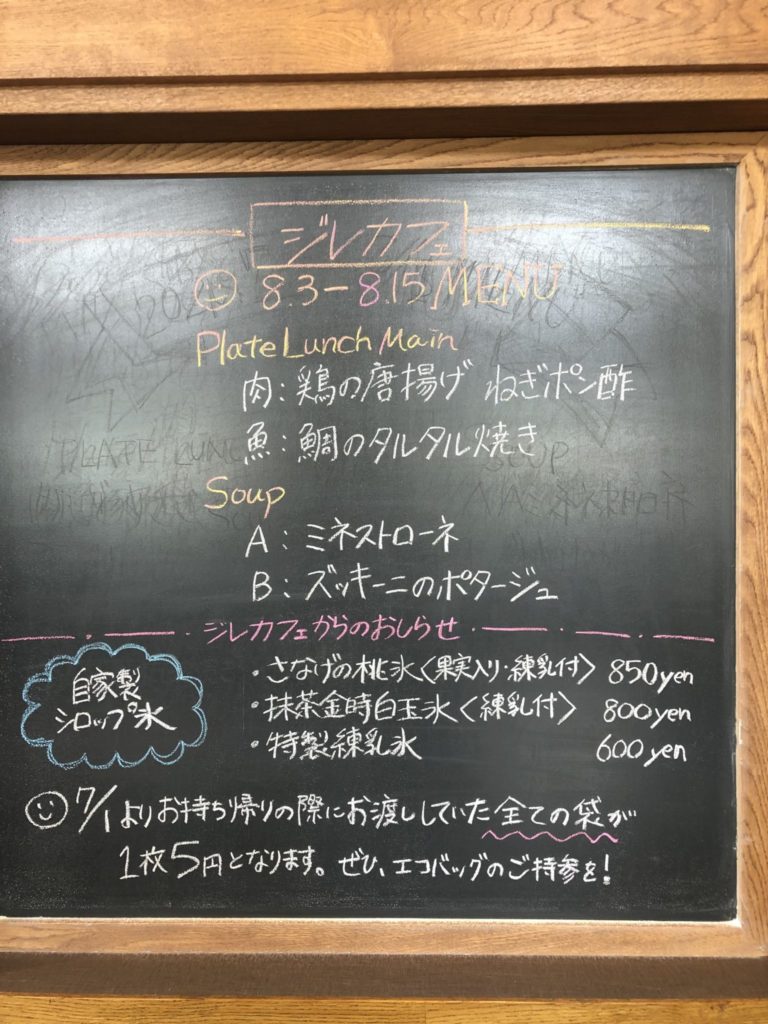 ジレカフェ
8.3-8.15 MENU
Plate Lunch Main
肉:鶏の唐揚げ ねぎポン酢
魚:鯛のタルタル焼き
Soup
A:ミネストローネ
B:ズッキーニのポタージュ
ジレカフェからのおしらせ
自家製
シロップ氷
・さなげの桃氷〈果実入り・練乳付〉 850yen
・抹茶金時白玉氷〈練乳付〉 800yen
・特製練乳氷 600yen
7/1よりお持ち帰りの際にお渡ししていた全ての袋が
1枚5円となります。ぜひ、エコバッグのご持参を!